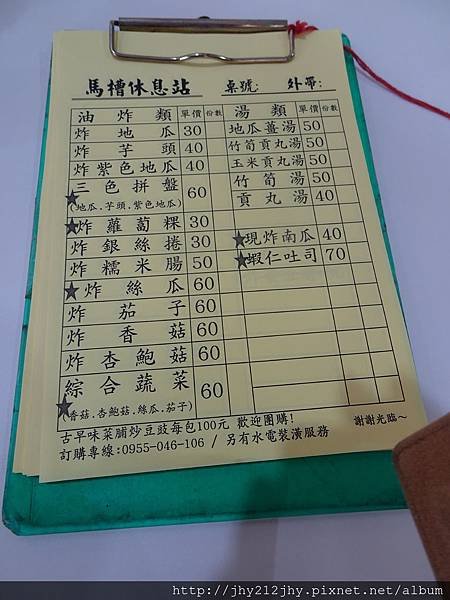 馬槽休息站 桌號: 外帶:
油炸類 單價 份數 湯類 單價 份數
炸地瓜 30 地瓜薑湯 50
炸芋頭 40 竹筍貢丸湯 50
炸紫色地瓜 40 玉米貢丸湯 50
★三色拼盤 60 竹筍湯 50
(地瓜.芋頭.紫色地瓜) 貢丸湯 40
★炸蘿蔔粿 30 ★現炸南瓜 40
炸銀絲捲 30 ★蝦仁吐司 70
炸糯米腸 50
★炸絲瓜 60
炸茄子 60
炸香菇 60
炸杏鮑菇 60
★綜合蔬菜 60
(香菇.杏鮑菇.絲瓜.茄子)
古早味菜脯炒豆豉每包100元 歡迎團購! 謝謝光臨~
訂購專線:0955-046-106 / 另有水電裝潢服務
http://jhy212jhy.pixnet.net/album